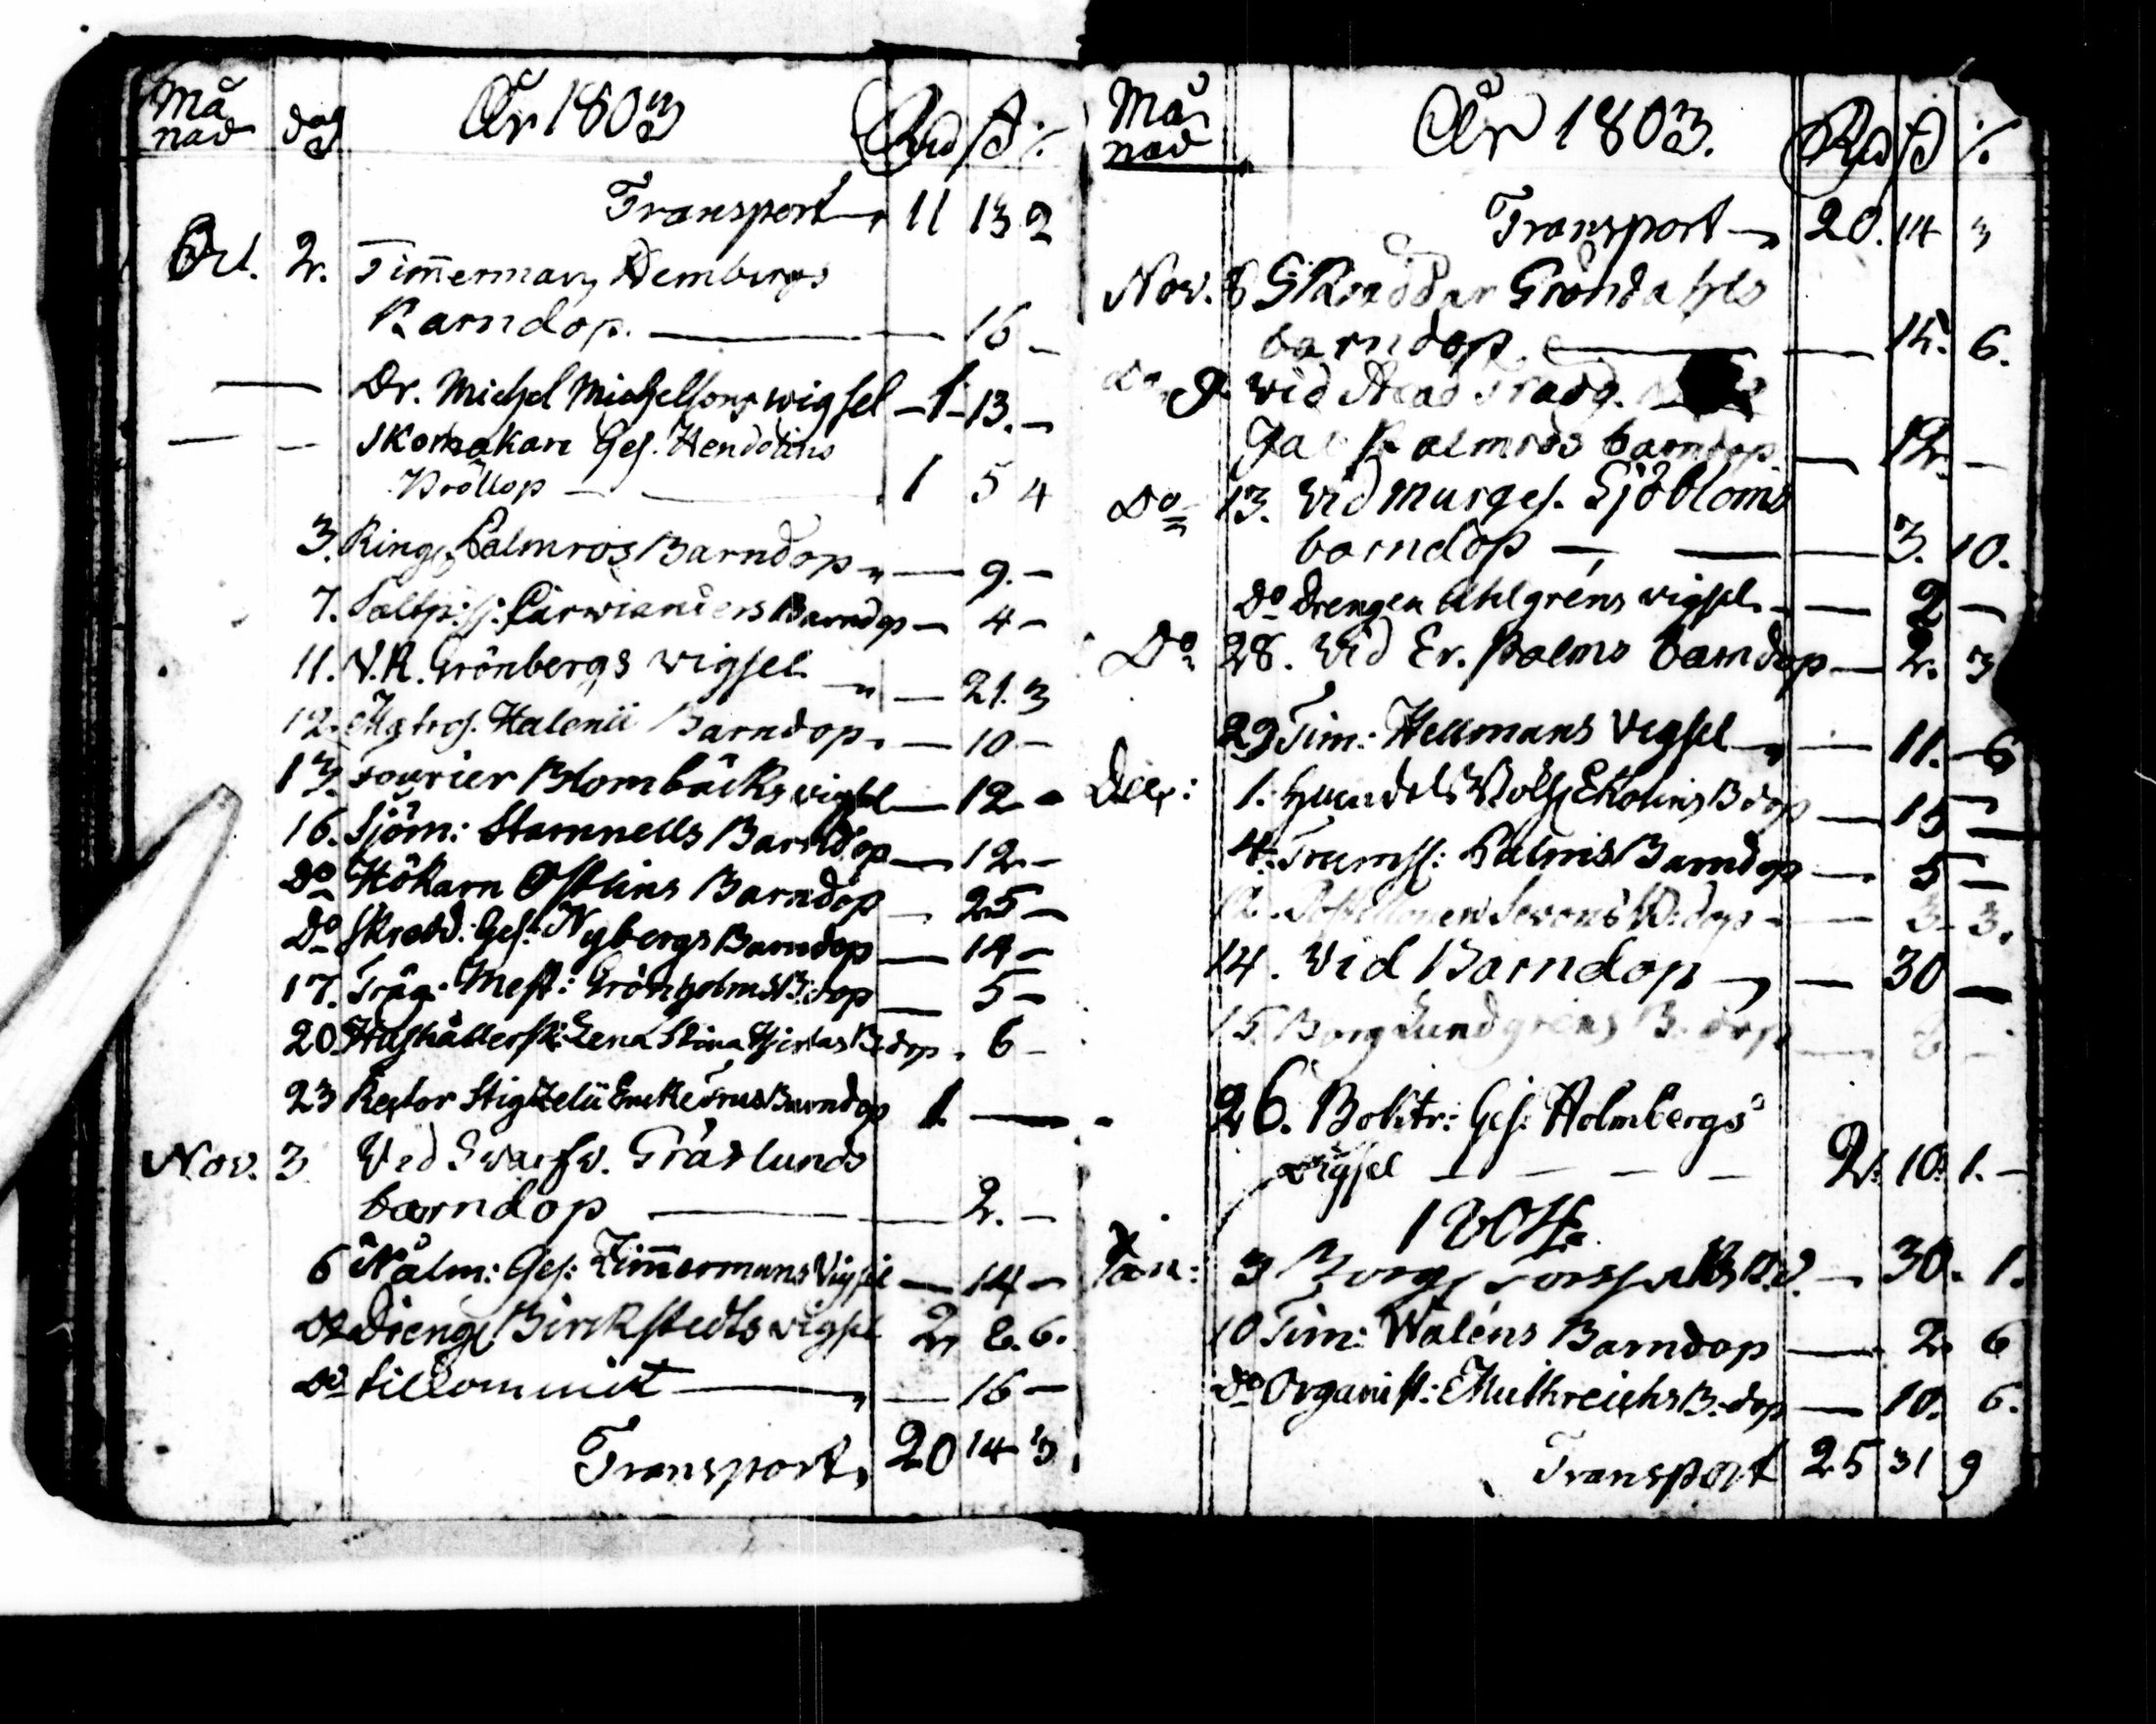 Må
nad dag År 1803 Rd ß %
Transport 11 13 2
Oct. 2. Timmerman Hembergs
Barndop. — 16 —
— Dr. Michel Michelsons wigsel — 1 — 13. —
— — Skomakare Ges. Hendolins
Bröllop — 1 5 4
3. Ring. Palmros Barndop — 9. —
7. Barndop — 4 —
11. N. R. Grönbergs wigsel — 21. 3
12. Halenii Barndop — 10 —
13. Fourier Blombäcks wigsel — 12 —
16. Sjöm: Stamnells Barndop — 12 —
Do Hökarn Östlins Barndop — 25 —
Do Skredd: Ges: Nybergs Barndop — 14 —
17. Träg. Mest: Grönholms B:dop — 5 —
20. Hushållersk: Lena Stina B:dop 6 —
23 Rector Stigzelii Enkefrus Barndop 1 —
Nov. 3 Ved Svarfv. Gräslunds
barndop — 2. —
6 Målm: Ges: Zimmermans Vigsel — 14 —
Do Dreng Birckstedts vigsel 2 8. 6.
Do — 16 —
Transport, 20 14 3
Må
nad År 1803. Rd ß %
Transport 20. 14 3
Nov. 8 Skreddar Gröndahls
barndop. — 15. 6.
Do 9. wid Acad Trädg.
Gal Palmros barndop. — 12. —
Do 13. Vid Murges. Sjöbloms
barndop — 3. 10.
Do Drengen Ahlgrens vigsel. — 2 —
Do 28. Vid Er. Palms barndop — 2. 3
29 Tim: Hellmans Vigsel — 11. — 6
Dec: 1. Ekolins Bdop — 15 —
4. Palms Barndop — 5 —
B:dop — 3. 3.
14. Vid Barndop — 30 —
15. Borg Lundgrens B. dop —
26. Boktr: Ges: Holmbergs
vigsel — — — — 2. 10. 1. —
1804.
Jan: 3 Borg 30. 1.
10 Tim: Walens Barndop — 2 6
Do Organist: B:dop — 10. 6.
Transport 25 31 9